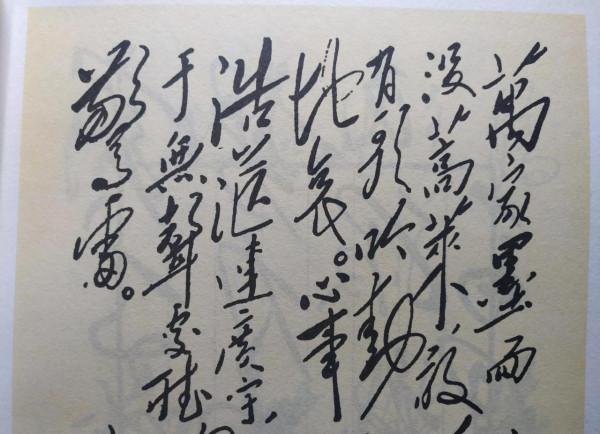 萬家墨面
没蒿萊，敢
有歌吟動
地哀。心事
浩茫連廣宇，
于無聲處聽
驚雷。